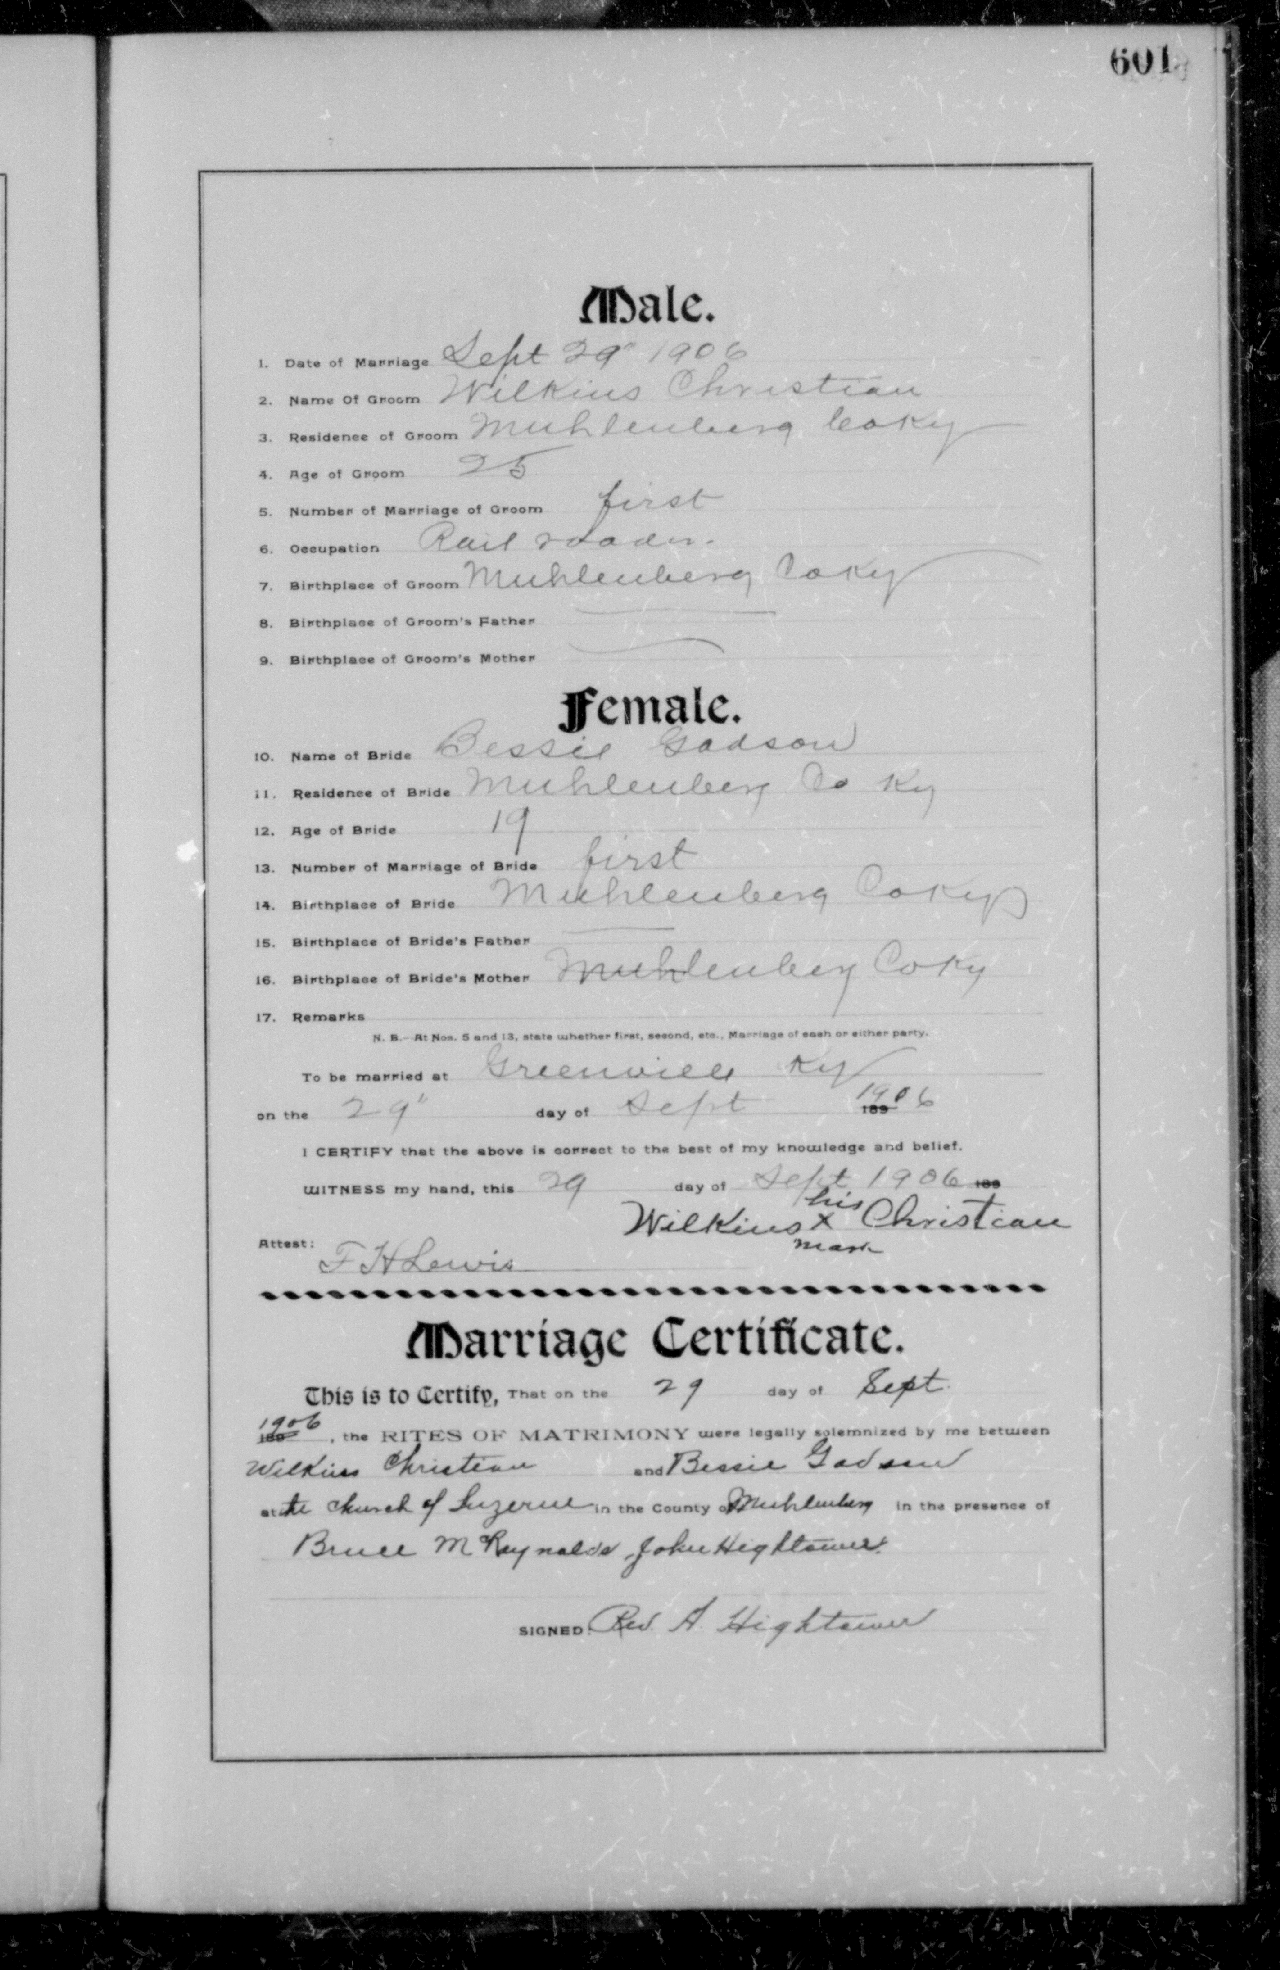 601
Male.
1. Date of Marriage Sept 29" 1906
2. Name Of Groom Wilkins Christian
3. Residence of Groom Muhlenberg Co Ky
4. Age of Groom 25
5. Number of Marriage of Groom first
6. Occupation Rail roader.
7. Birthplace of Groom Muhlenberg Co Ky
8. Birthplace of Groom's Father
9. Birthplace of Groom's Mother
Female.
10. Name of Bride Bessie Gadson
11. Residence of Bride Muhlenberg Co Ky
12. Age of Bride 19
13. Number of Marriage of Bride first
14. Birthplace of Bride Muhlenberg Co Ky
15. Birthplace of Bride's Father
16. Birthplace of Bride's Mother Muhlenberg Co Ky
17. Remarks
N. B.—At Nos. 5 and 13, state whether first, second, etc., Marriage of each or either party.
To be married at Greenville Ky
on the 29" day of Sept 189 1906
I CERTIFY that the above is correct to the best of my knowledge and belief.
WITNESS my hand, this 29 day of Sept 1906 189
his
Wilkins x Christian
mark
Attest: F H Lewis
Marriage Certificate.
This is to Certify, That on the 29 day of Sept.
1906 189, the RITES OF MATRIMONY were legally solemnized by me between
Wilkins Christian and Bessie Gadson
at the church of Luzerne in the County of Muhlenberg in the presence of
Bruce McRaynolds, John Hightower.
SIGNED: Rev A. Hightower